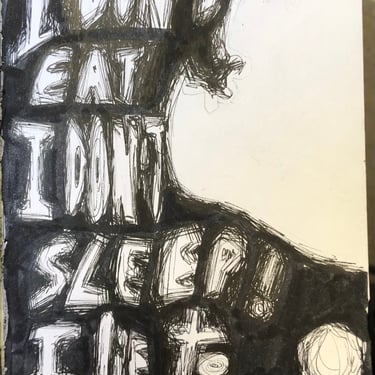 I DON
EAT
I DONT
SLEEP!
I